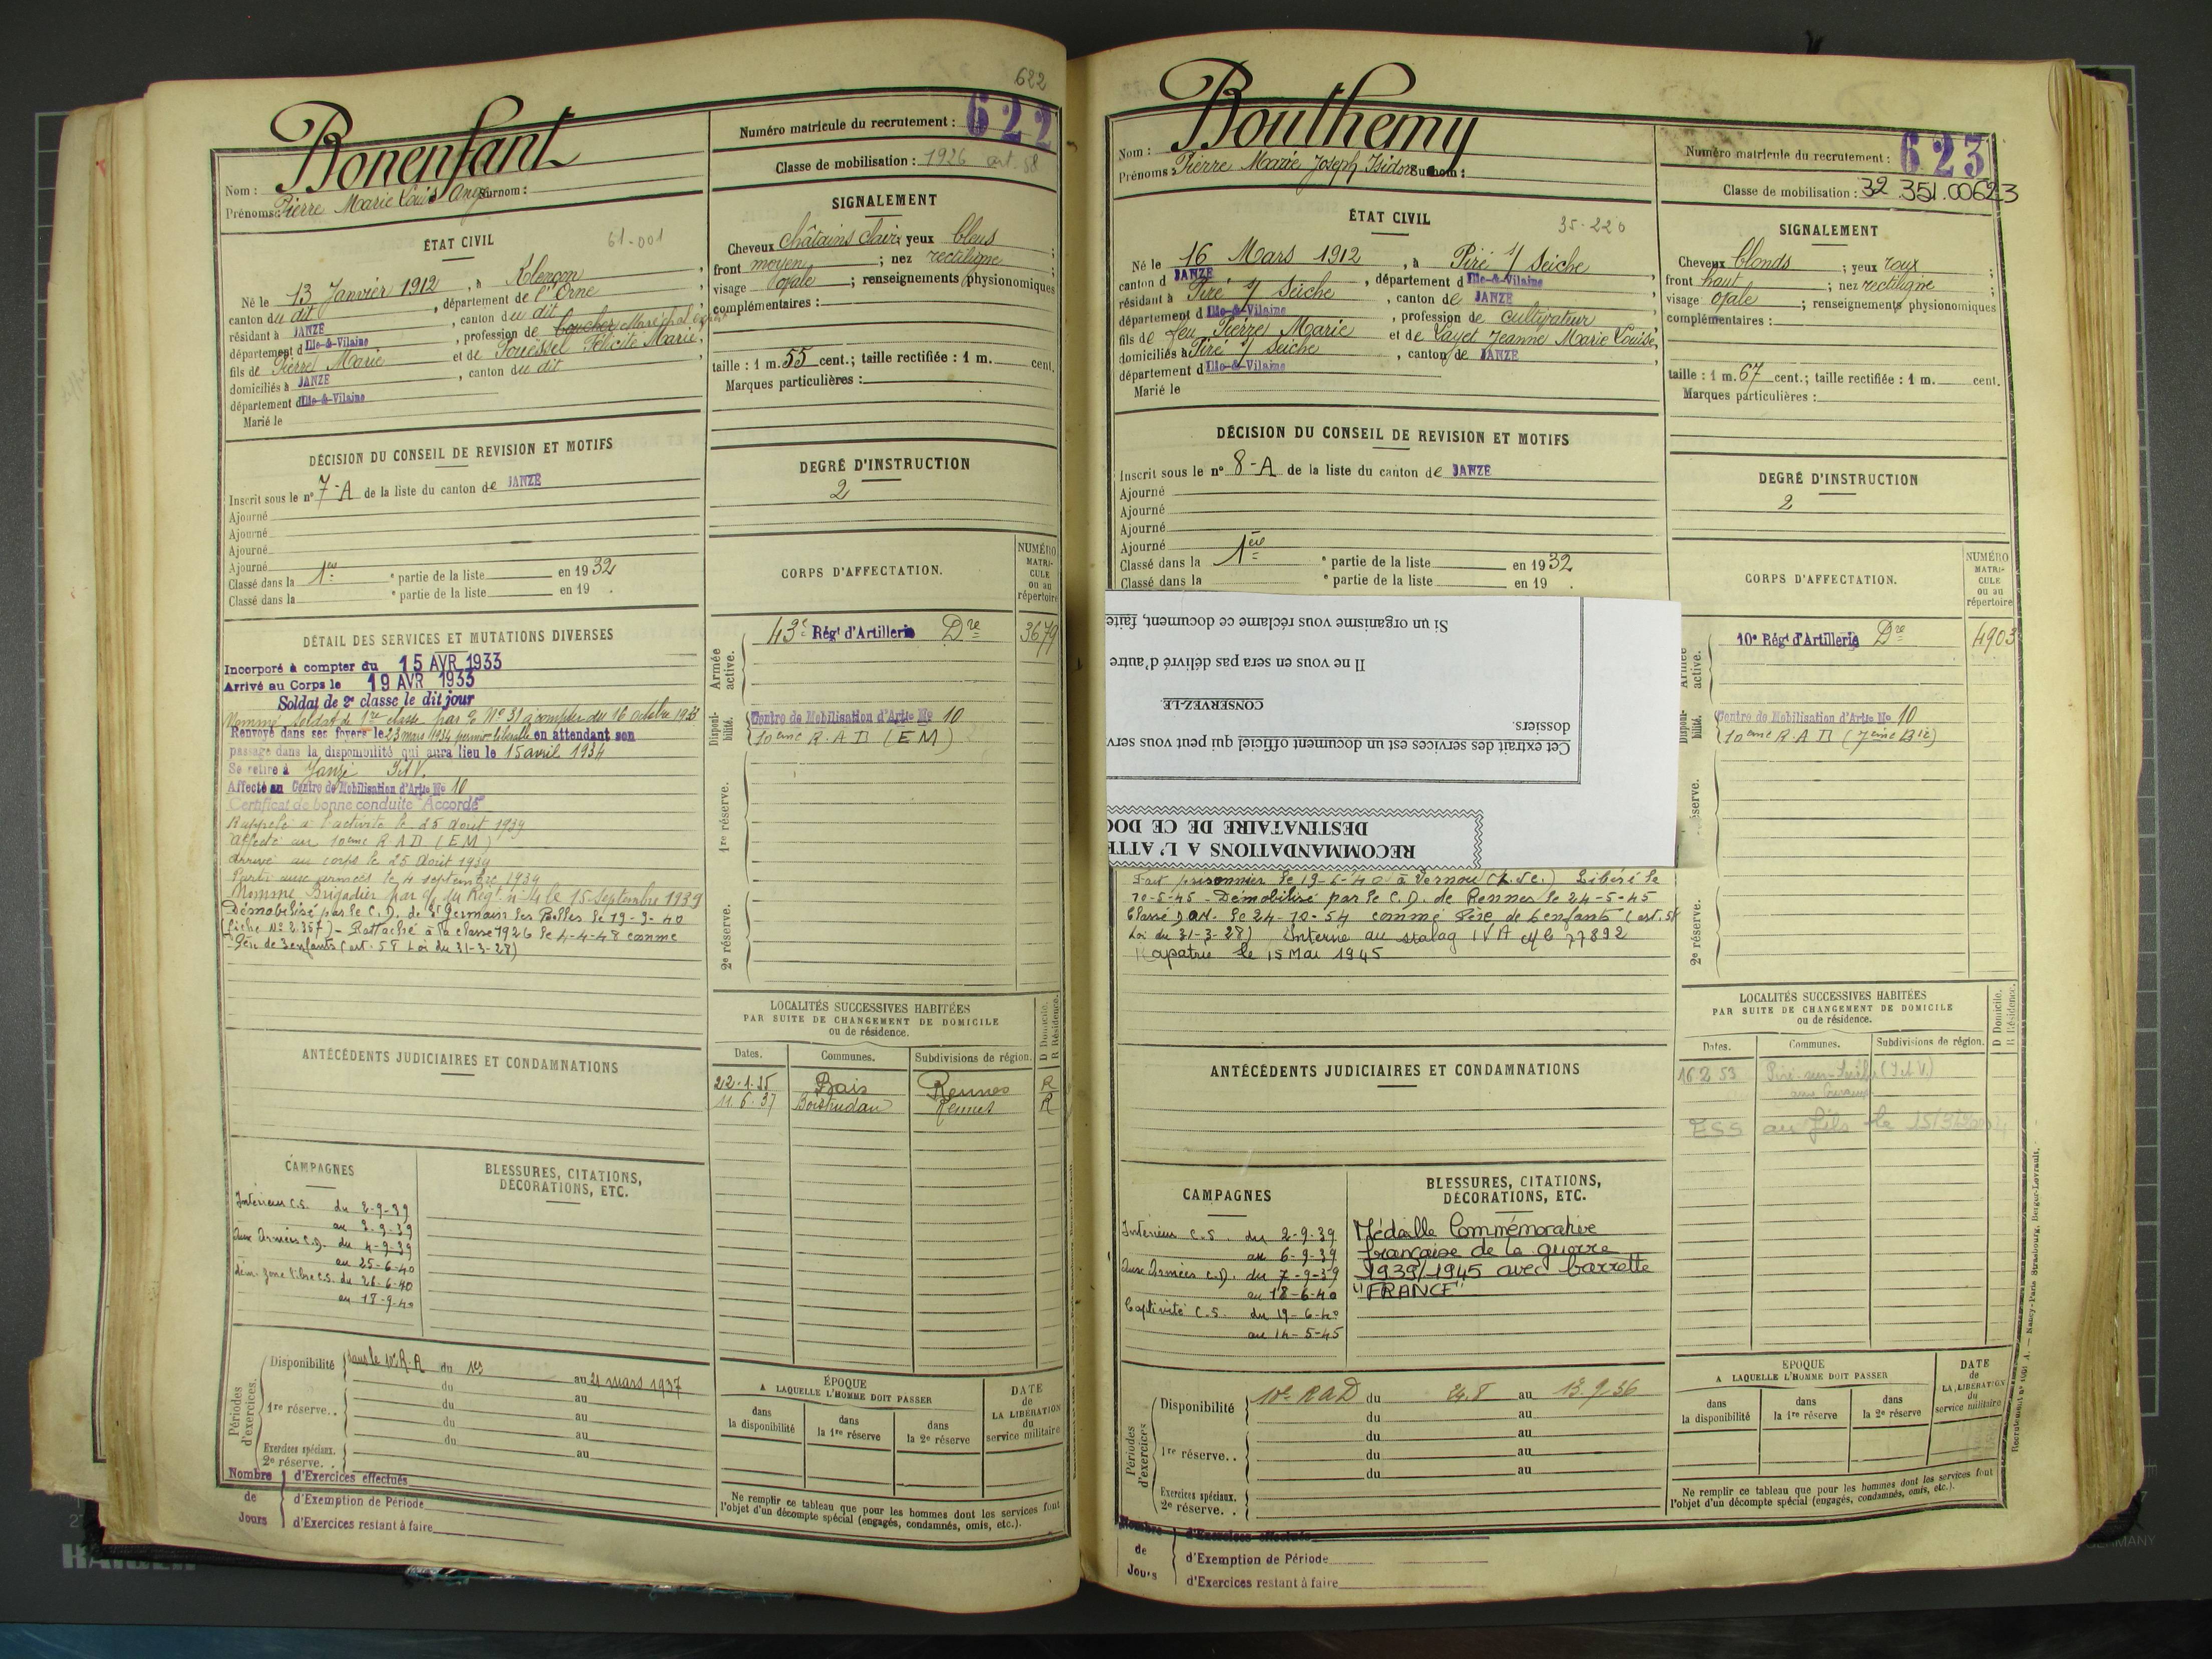 622
Bonenfant
Nom :
Prénoms : Pierre Marie Louis Ange Surnom :
Numéro matricule du recrutement : 622
Classe de mobilisation : 1926 art. 58
ÉTAT CIVIL
61-001
Né le 13 Janvier 1912, à Alençon,
canton du dit, département de l'Orne,
résidant à JANZÉ, canton du dit,
département d'Ille-&-Vilaine, profession de boucher Maréchal
fils de Pierre Marie et de Fouessel Félicité Marie,
domiciliés à JANZÉ, canton du dit
département d'Ille-&-Vilaine
Marié le
SIGNALEMENT
Cheveux châtains clairs yeux bleus ;
front moyen ; nez rectiligne ;
visage ovale ; renseignements physionomiques
complémentaires :
taille : 1 m. 55 cent.; taille rectifiée : 1 m. cent.
Marques particulières :
DÉCISION DU CONSEIL DE REVISION ET MOTIFS
Inscrit sous le n° 7-A de la liste du canton de JANZÉ
Ajourné
Ajourné
Ajourné
Ajourné
Classé dans la 1ère e partie de la liste en 1932
Classé dans la e partie de la liste en 19 .
DEGRÉ D'INSTRUCTION
2
CORPS D'AFFECTATION.
NUMÉRO
MATRI-
CULE
ou au
répertoire
Armée active.
43e Régt d'Artillerie Dre 3679
Disponibilité.
Centre de Mobilisation d'Artie No 10
(10ème R.A.D (EM)
1re réserve.
2e réserve.
DÉTAIL DES SERVICES ET MUTATIONS DIVERSES
Incorporé à compter du 15 AVR 1933
Arrivé au Corps le 19 AVR 1933
Soldat de 2e classe le dit jour
Nommé soldat de 1re classe par No 31 à compter du 16 octobre 1933
Renvoyé dans ses foyers le 23 mars 1934 en attendant son
passage dans la disponibilité qui aura lieu le 15 avril 1934
Se retire à Janzé I et V.
Affecté au Centre de Mobilisation d'Artie No 10
Certificat de bonne conduite "Accordé"
Rappelé à l'activité le 25 Août 1939
Affecté au 10ème R A D (EM)
Arrivé au corps le 25 Août 1939
Parti aux armées le 4 septembre 1939
Nommé Brigadier par du Régt n° 14 le 15 Septembre 1939
Démobilisé par le C.D. de St Germain les Belles le 19-9-40
(fiche No 2.357) - Rattaché à la classe 1926 le 4-4-48 comme
Père de 3 enfants (art. 58 Loi du 31-3-28)
ANTÉCÉDENTS JUDICIAIRES ET CONDAMNATIONS
LOCALITÉS SUCCESSIVES HABITÉES
PAR SUITE DE CHANGEMENT DE DOMICILE
ou de résidence.
D Domicile.
R Résidence.
Dates. Communes. Subdivisions de région.
22.1.35 Bais Rennes R
11.6.37 Boistrudan Rennes R
CAMPAGNES
Intérieur C.S. du 2-9-39
au 3-9-39
Aux Armées C.D. du 4-9-39
au 25-6-40
dém. zone libre C.S. du 26-6-40
au 18-9-40
BLESSURES, CITATIONS,
DÉCORATIONS, ETC.
Périodes d'exercices.
Disponibilité dans le 10e R.A du 1er au 21 mars 1937
du au
1re réserve. . du au
du au
du au
Exercices spéciaux.
2e réserve. .
ÉPOQUE
A LAQUELLE L'HOMME DOIT PASSER
dans la disponibilité
dans la 1re réserve
dans la 2e réserve
DATE
de
LA LIBÉRATION
du
service militaire
Ne remplir ce tableau que pour les hommes dont les services font
l'objet d'un décompte spécial (engagés, condamnés, omis, etc.).
Nombre de Jours
d'Exercices effectués
d'Exemption de Période
d'Exercices restant à faire
Bouthemy
Nom :
Prénoms : Pierre Marie Joseph Isidore Surnom :
Numéro matricule du recrutement : 623
Classe de mobilisation : 32 351.00623
ÉTAT CIVIL
35-220
Né le 16 Mars 1912, à Piré s/ Seiche
canton d JANZÉ, département d'Ille-&-Vilaine,
résidant à Piré s/ Seiche, canton de JANZÉ,
département d'Ille-&-Vilaine, profession de cultivateur
fils de feu Pierre Marie et de Layet Jeanne Marie Louise,
domiciliés à Piré s/ Seiche, canton de JANZÉ
département d'Ille-&-Vilaine
Marié le
SIGNALEMENT
Cheveux blonds ; yeux roux ;
front haut ; nez rectiligne ;
visage ovale ; renseignements physionomiques
complémentaires :
taille : 1 m. 67 cent.; taille rectifiée : 1 m. cent.
Marques particulières :
DÉCISION DU CONSEIL DE REVISION ET MOTIFS
Inscrit sous le n° 8-A de la liste du canton de JANZÉ
Ajourné
Ajourné
Ajourné
Ajourné
Classé dans la 1ère e partie de la liste en 1932
Classé dans la e partie de la liste en 19 .
DEGRÉ D'INSTRUCTION
2
CORPS D'AFFECTATION.
NUMÉRO
MATRI-
CULE
ou au
répertoire
Armée active.
10e Régt d'Artillerie Dre 4903
Disponibilité.
Centre de Mobilisation d'Artie No 10
(10ème R.A.D (7ème Bie)
réserve.
2e réserve.
RECOMMANDATIONS A L'ATTE
DESTINATAIRE DE CE DOC
Cet extrait des services est un document officiel qui peut vous serv
dossiers.
CONSERVEZ-LE.
Il ne vous en sera pas délivré d'autre
Si un organisme vous réclame ce document, faite
Fait prisonnier le 19-6-40 à Vernou (L. et C.) Libéré le
10-5-45 - Démobilisé par le C.D. de Rennes le 24-5-45
Classé le 24-10-54 comme Père de 6 enfants (art. 58
Loi du 31-3-28) Interné au stalag IV A No 77892
Rapatrié le 15 Mai 1945
ANTÉCÉDENTS JUDICIAIRES ET CONDAMNATIONS
LOCALITÉS SUCCESSIVES HABITÉES
PAR SUITE DE CHANGEMENT DE DOMICILE
ou de résidence.
D Domicile.
R Résidence.
Dates. Communes. Subdivisions de région.
16.2.53 Piré-sur-Seiche (I et V.)
ESS au fils le 15/3/
CAMPAGNES
Intérieur C.S. du 2-9-39
au 6-9-39
Aux Armées C.D. du 7-9-39
au 18-6-40
Captivité C.S. du 19-6-40
au 14-5-45
BLESSURES, CITATIONS,
DÉCORATIONS, ETC.
Médaille Commémorative
française de la guerre
1939/1945 avec barrette
"FRANCE"
Périodes d'exercices
Disponibilité 10e RAD du 24.8 au 13.9.36
du au
du au
1re réserve. . du au
du au
Exercices spéciaux.
2e réserve. .
EPOQUE
A LAQUELLE L'HOMME DOIT PASSER
dans la disponibilité
dans la 1re réserve
dans la 2e réserve
DATE
de
LA LIBÉRATION
du
service militaire
Ne remplir ce tableau que pour les hommes dont les services font
l'objet d'un décompte spécial (engagés, condamnés, omis, etc.).
Nombre de Jours
d'Exercices effectués
d'Exemption de Période
d'Exercices restant à faire
Nancy-Paris Strasbourg, Berger-Levrault.
GERMANY